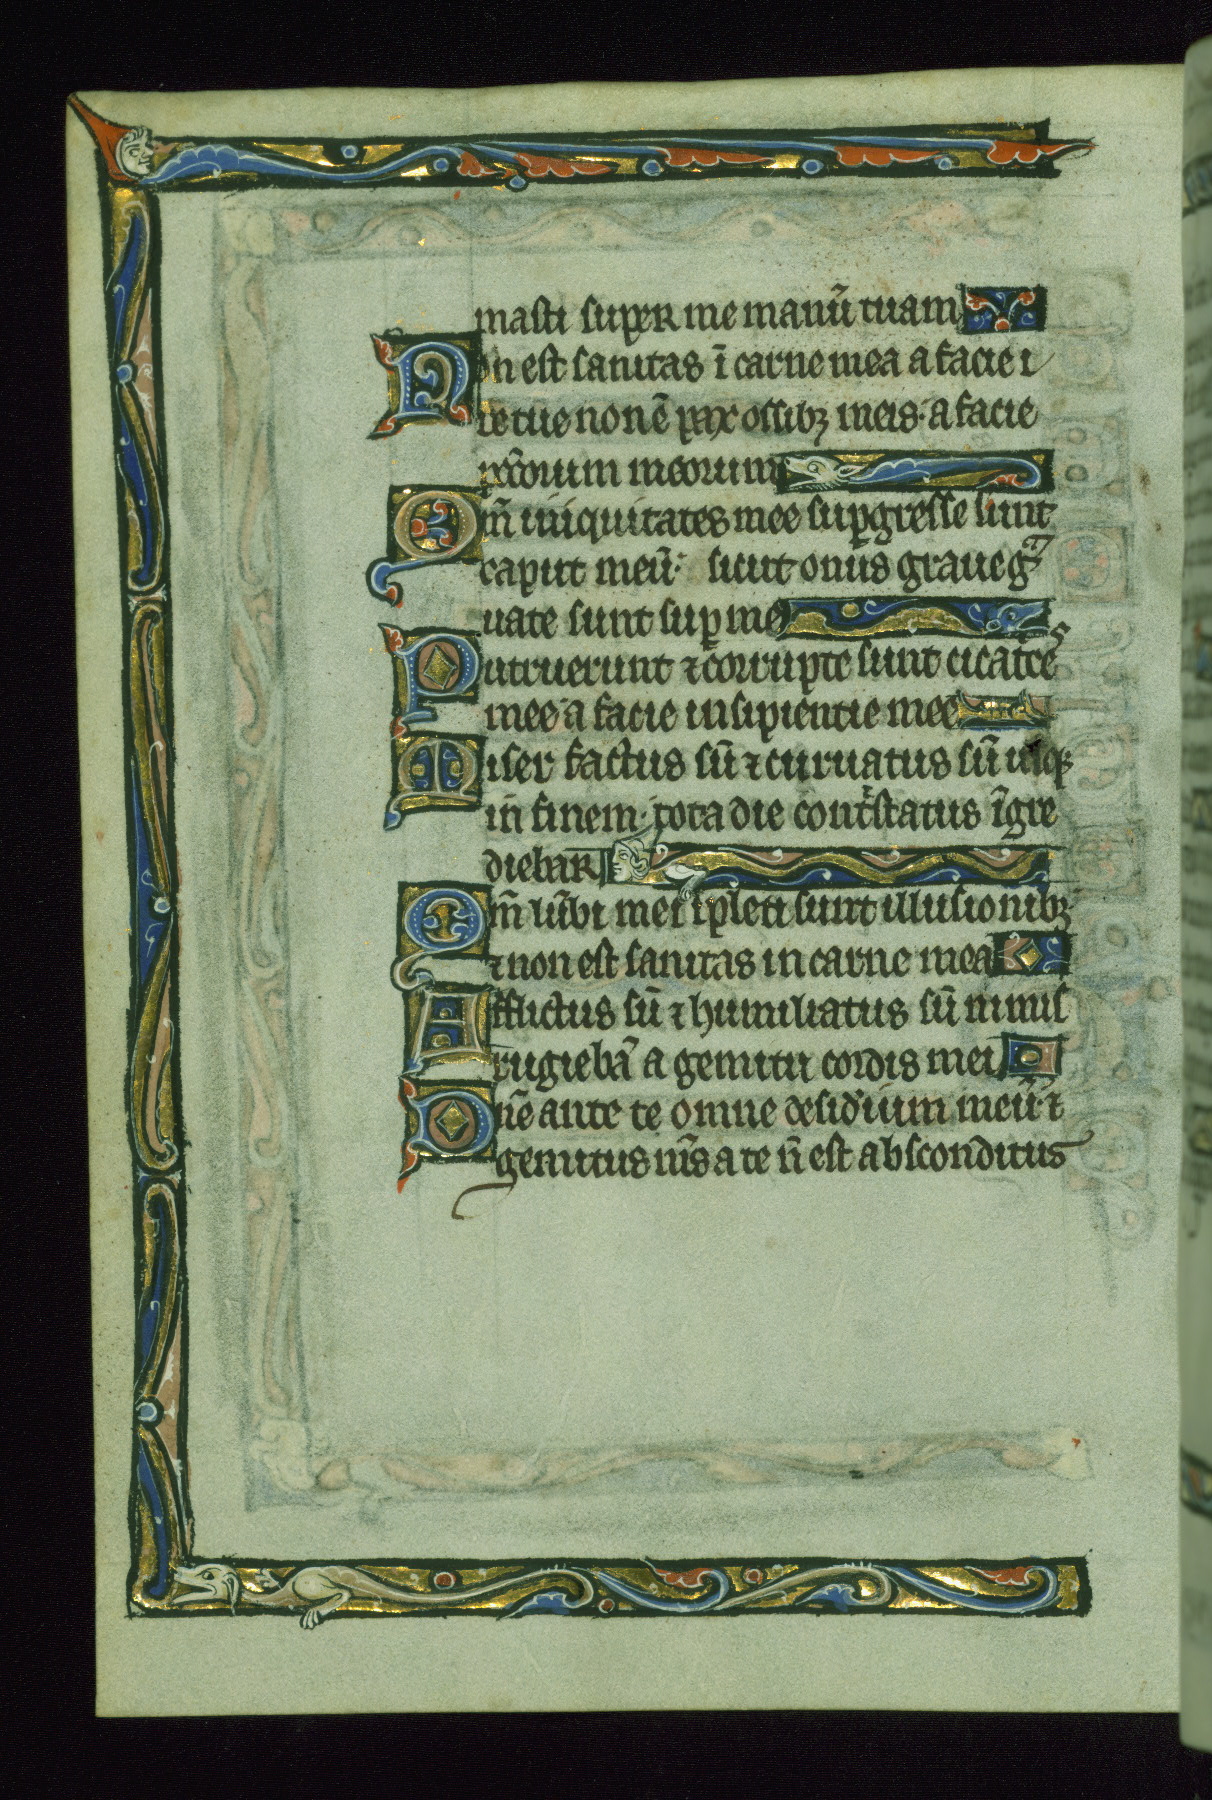 masti super me manũ tuam
Non est sanitas ĩ carne mea a facie i
re tue non ẽ pax ossibꝫ meis· a facie
pcc̃orum meorum
Qm̃ iniquitates mee supgresse sunt
caput meũ· sicut onus graue gͣ
uate sunt sup̱ me
Putruerunt ⁊ corrupte sunt cicatͥceˢ
mee a facie insipientie mee
Miser factus sũ ⁊ curuatus sũ usqꝫ
in finem· tota die contͥstatus ĩgre
diebar
Qm̃ lũbi mei ĩpleti sunt illusionibꝫ
⁊ non est sanitas in carne mea
Afflictus sũ ⁊ humiliatus sũ nimis
rugiebã a gemitu cordis mei
Dñe ante te omne desid̓ium meũ· ⁊
gemitus m̃s a te ñ est absconditus